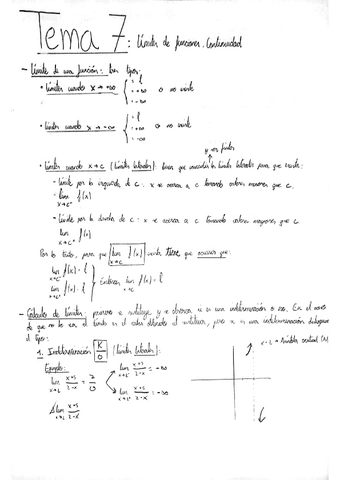 Tema 7: Límites de funciones. Continuidad
- Límites de una función: tres tipos:
• Límites cuando x → +∞ { · l · +∞ · -∞ o no existe
• Límites cuando x → -∞ { · l · +∞ · -∞ o no existe
y es finito
• Límites cuando x → c (límites laterales): tienen que los límites laterales para que exista:
- Límite por la izquierda de c: x se acerca a c tomando valores menores que c.
lim f(x)
x→c⁻
- Límite por la derecha de c: x se acerca a c tomando valores mayores que c.
lim f(x)
x→c⁺
Por lo tanto, para que lim f(x) exista tiene que ocurrir que:
x→c
lim f(x) = l
x→c⁻
lim f(x) = l } Entonces, lim f(x) = l
x→c⁺ x→c
- Cálculo de límites: primero se sustituye y se observa si es una indeterminación o no. En el caso
de que no lo sea, el límite es el valor obtenido al sustituir, pero si es una indeterminación
el tipo:
1. Indeterminación K/0 (límites laterales):
Ejemplo:
lim x+5/2-x = 7/0
x→2
lim x+5/2-x = +∞
x→2⁻
lim x+5/2-x = -∞
x→2⁺
∄ lim x+5/2-x
x→2
x=2 → Asíntota vertical